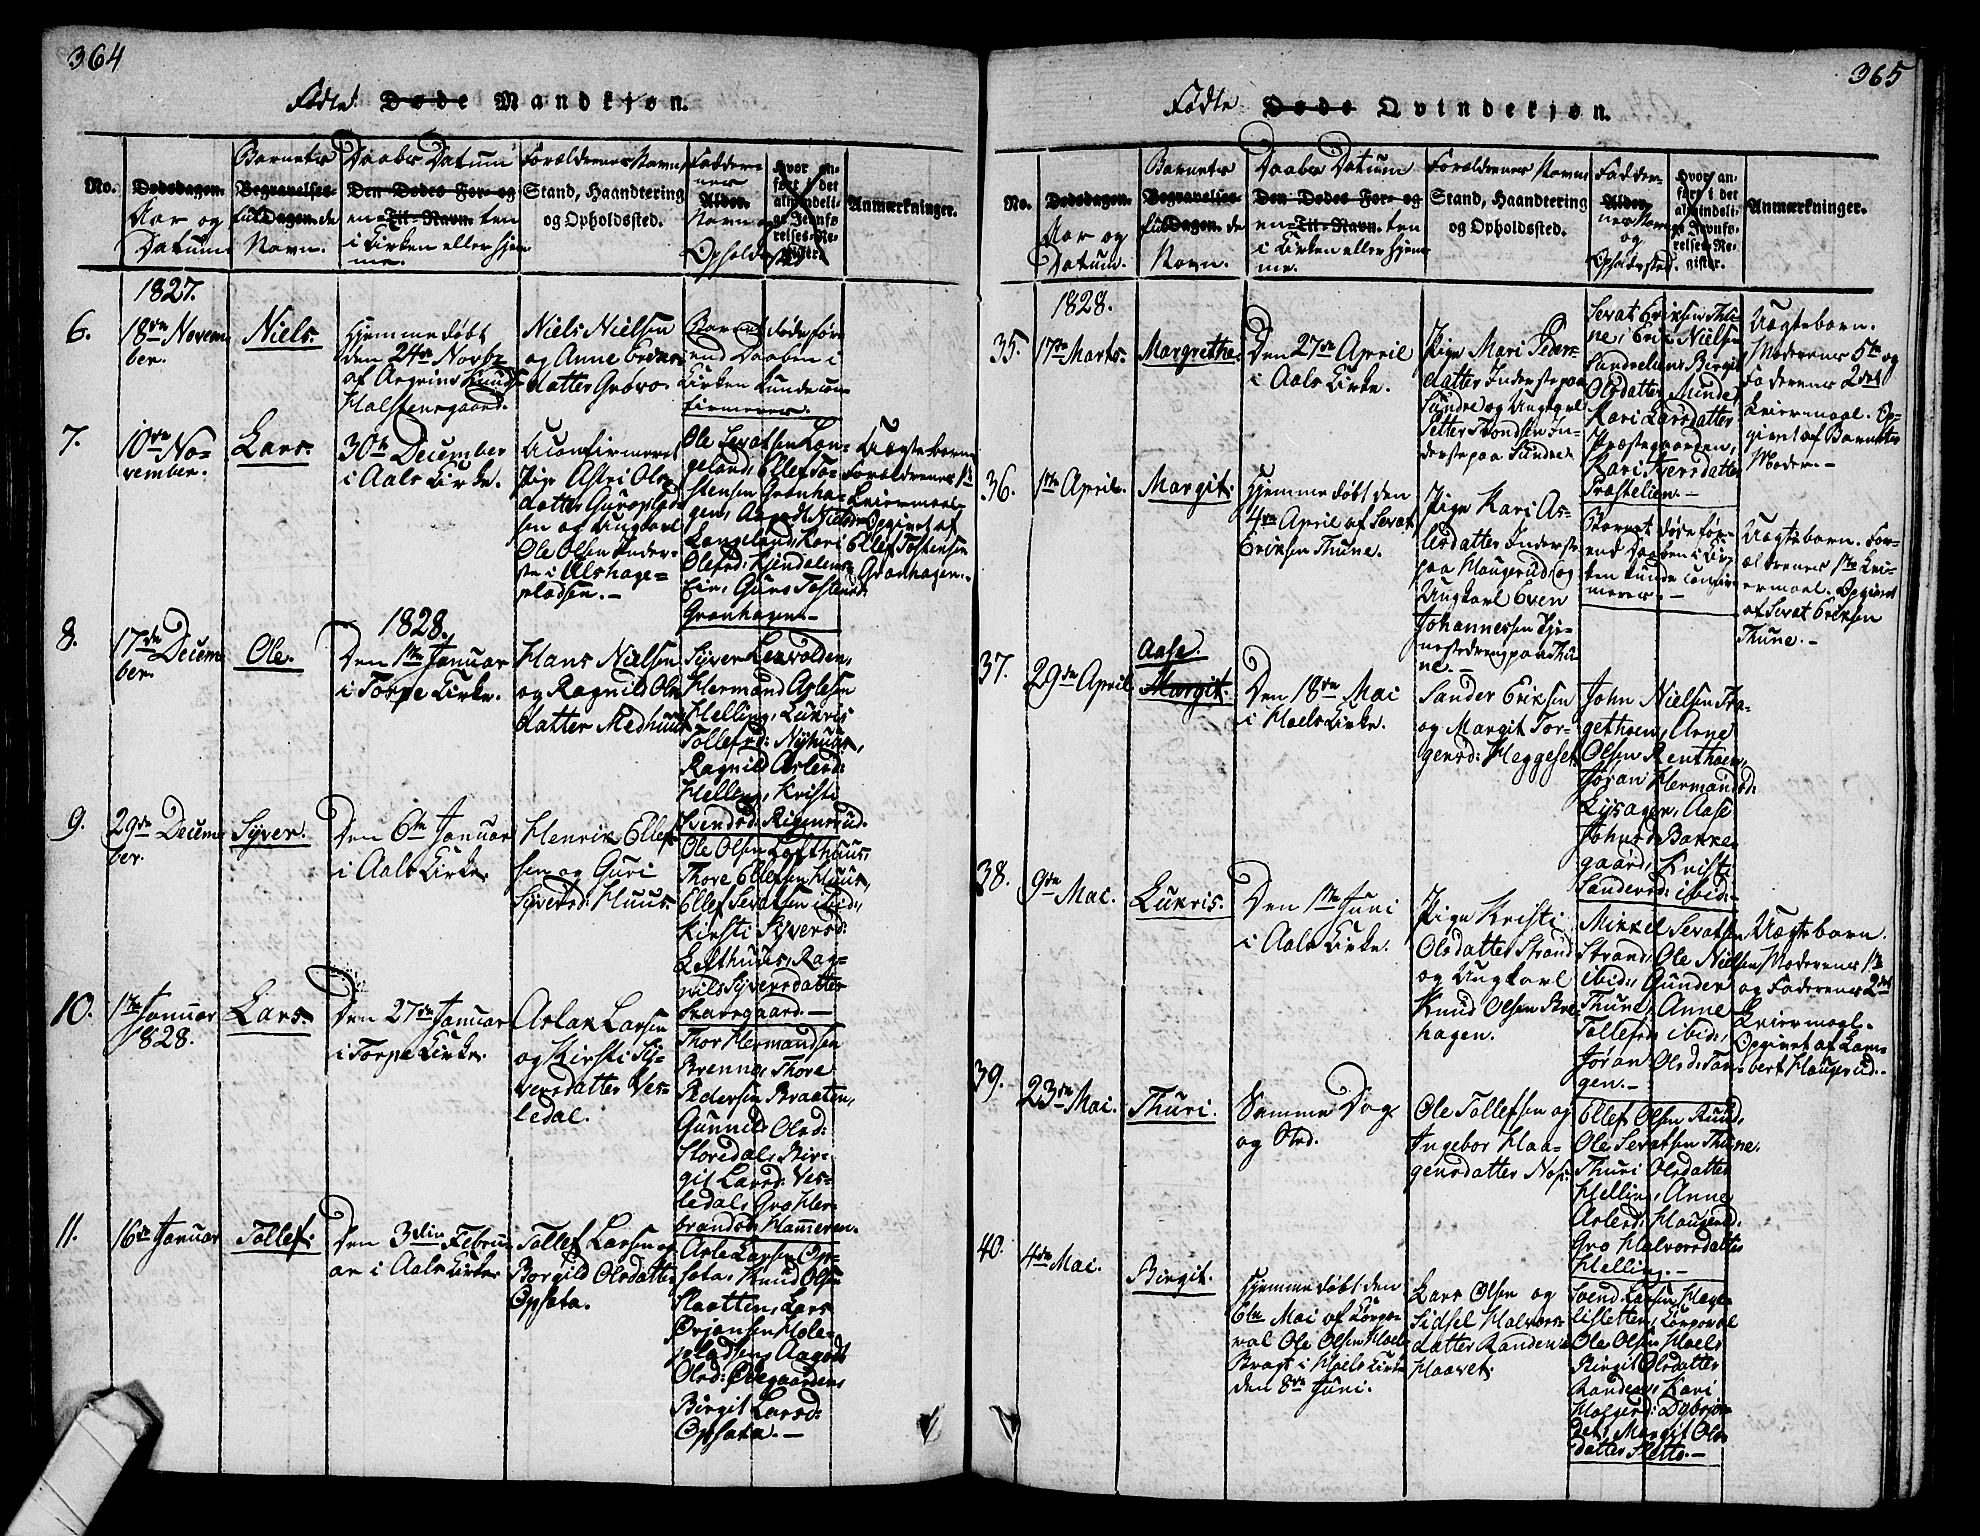 364
Fødte Døde Mandkjøn.
No.
Dødsdagen.
Aar og
Datum
Barnets
Begravelses-
fulddagen.de
Navn.
Daabs Datum
Den Dødes For- og
en-Til-Navn. ten
i Kirken eller hjem
me.
Forældrenes Navn
Stand, Haandtering
og Opholdssted.
Fadder-
nes
Alder.
Navn og
Opholds
Hvor an-
ført i det
almindeli-
ge Jevnfø-
relses-Re-
gister.
Anmærkninger.
1827.
6.
18de Novem
ber.
Niels.
Hjemmedøbt
den 24de Novbr
af Asgrim Knuds
Halstensgaard.
Niels Nielsen
og Anne Eriks-
datter Grøvo
Barnet døde før
end Daaben i
Kirken kunde con
firmeres.
7.
10de No-
vember.
Lars.
30te December
i Aals Kirke.
Uconfirmeret
Pige Astri Ols-
datter Guroplad-
sen og Ungkarl
Ole Olsen Inder-
ste i Ulshage-
pladsen.-
Ole Sevatsen Lan-
geland, Ellef To-
stensen Grønha-
gen, Aagodt Nielsdr
Langeland, Kari
Olsd: Kjendalens-
Eie, Guro Tostensd
Grønhagen.-
Uægtebarn
Forældrenes 1ste
Leiermaal.
Opgivet af
Ellef Tostensen
Grønhagen.-
8.
17de Decem
ber.
Ole.
1828.
Den 1ste Januar
i Torpe Kirke.
Hans Nielsen
og Ragnild Ols-
datter Medhuus
Syver Levolden,
Hermand Aslesen
Helling, Lukris
Tollefsd: Nyhuus,
Ragnild Aslesd:
Helling, Kristi
Svendsd: Rigensrud.
9.
29de Decem
ber.
Syver.
Den 6te Januar
i Aals Kirke.
Henrik Ellef-
sen og Guri
Syversd: Huus.
Ole Olsen Lofthuus,
Thore Ellefsen Huus,
Ellef Sevatsen ibid:,
Kirsti Syversd:
Lofthuus, Rag-
nild Syversdatter
Skarsgaard.-
10.
1ste Januar
1828.
Lars.
Den 27de Januar
i Torpe Kirke.
Aslak Larsen
og Kirsti Sy-
versdatter Ves-
ledal.
Thor Hermandsen
Brenno, Thore
Pedersen Braaten,
Gunnild Olsd:
Storedal, Bir-
git Larsd: Ves-
ledal, Gro Her-
brandsd: Hammeren.
11.
16de Januar
Tollef.
Den 3die Febru-
ar i Aals Kirke
Tollef Larsen og
Borgild Olsdatter
Opsata.
Asle Larsen Op-
sata, Knud Olsen
Slaatten, Lars
Ørjansen Hole-
pladsen, Aagodt
Olsd: Ødegaarden,
Birgit Larsd:
Opsata.-
365
Fødte Døde Qvindekjøn.
No.
Dødsdagen.
Aar og
Datum.
Barnets
Begravelses-
fulddagen.de
Navn.
Daabs Datum
Den Dødes For- og
en-Til-Navn. ten
i Kirken eller hjem
me.
Forældrenes Navn
Stand, Haandtering
og Opholdssted.
Fadder-
Alder
nes Navn
og
Opholdssted.
Hvor an-
ført i det
almindeli-
ge Jevnfø-
relses-Re-
gister.
Anmærkninger.
1828.
35.
17de Marts.
Margrethe.
Den 27de April
i Aals Kirke.
Pige Mari Peders-
datter Inderste paa
Sundre og Ungkarl
Petter Trondsen In-
derste paa Sundre.
Sevat Eriksen Thu-
ne, Erik Nielsen
Sandrelien, Birgit
Olsdatter Minde,
Kari Larsdatter
Præstegaarden,
Kari Iversdatter
Præstelien.-
Uægtebarn.
Moderens 5te og
Faderens 2det
Leiermaal. Op-
givet af Barnets
Moder.-
36.
1ste April.
Margit.
Hjemmedøbt den
4de April af Sevat
Eriksen Thune.
Pige Kari As-
lesdatter Inderste
paa Haugerud og
Ungkarl Even
Johannessen Tje-
nestedreng paa Thu-
ne.-
Barnet døde før-
end Daaben i Kir-
ken kunde confir-
meres.-
Uægtebarn. For-
ældrenes 1ste Lei-
ermaal. Opgivet
af Sevat Eriksen
Thune.-
37.
29de April
Aase.
Margit.
Den 18de Mai
i Hoels Kirke.
Sander Eriksen
og Margit Tor-
gersd: Heggeset.
John Nielsen Tra-
gethoen, Arne
Olsen Renthoen,
Jøran Hermandsd:
Lysager, Aase
Johnsd: Bakke-
gaard, Kristi
Sandersd: ibid:-
38.
9de Mai.
Lukris.
Den 1ste Juni
i Aals Kirke.
Pige Kristi
Olsdatter Strand
og Ungkarl
Knud Olsen Bre-
hagen.
Mikkel Sevatsen
Strand, Ole Nielsen
ibid:, Gunder
Thune, Anne
Tollefsd: ibid:,
Jøran Olsd: Tan-
gen.-
Uægtebarn.
Moderens 1ste
og Faderens 2det
Leiermaal.
Opgivet af Lam-
bert Haugerud.-
39.
23de Mai.
Thuri.
Samme Dag
og Sted.
Ole Tollefsen og
Ingebor Haa-
gensdatter Nos.
Ellef Olsen Ruud,
Ole Sevatsen Thune,
Thuri Olsdatter
Helling, Anne
Aslesd: Haugerud.
Gro Halvorsdatter
Helling.-
40.
4de Mai.
Birgit.
Hjemmedøbt den
6te Mai af Korpo-
ral Ole Olsen Hoel.
Bragt i Hoels Kirke
den 8de Juni.
Lars Olsen og
Sidsel Halvors-
datter Randen i
Haavet.
Svend Larsen Hage-
lisletten, Korporal
Ole Olsen Hoel,
Birgit Olsdatter
Randen, Kari
Holgersd: Dobrjor-
det, Margit Ols-
datter Sletto.-